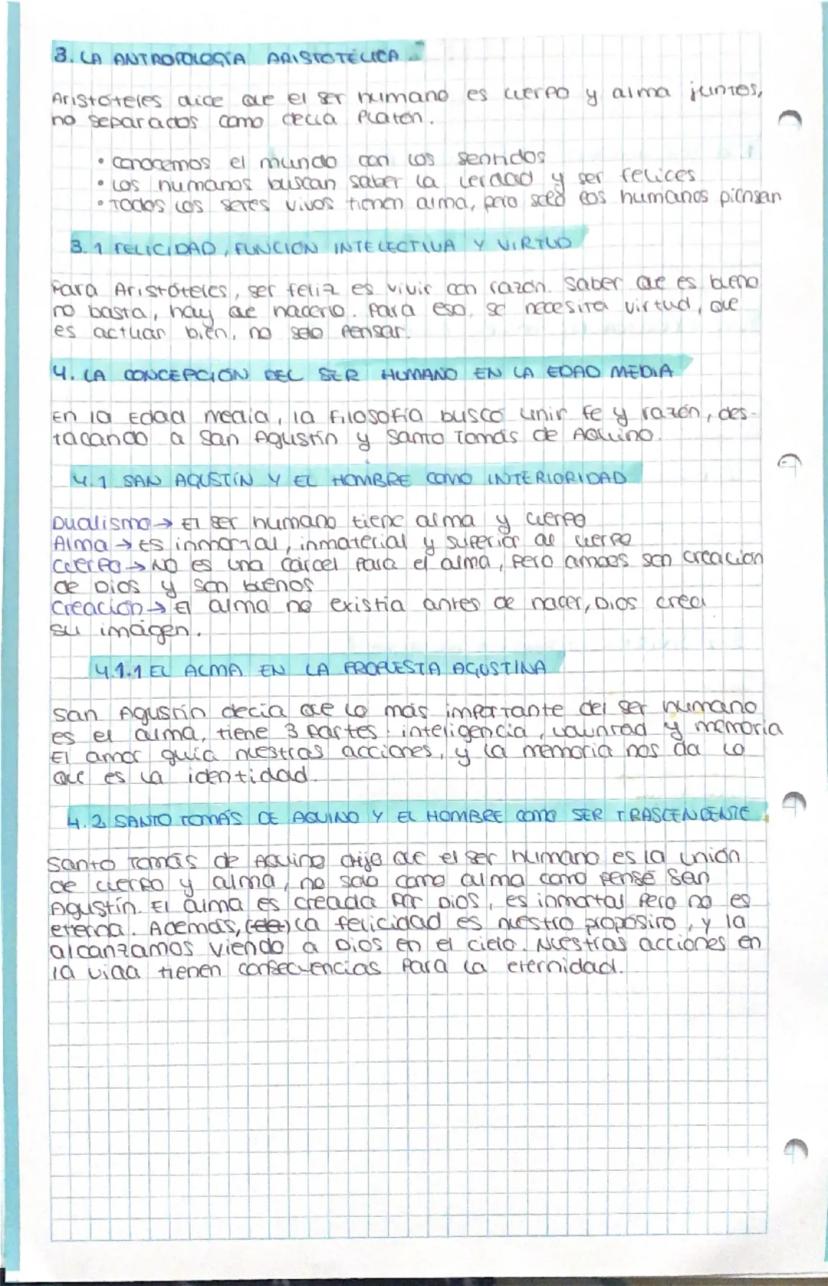 3. LA ANTROPOLOGÍA ARISTOTÉLICA
Aristóteles dice que el ser humano es cuerpo y alma juntos,
no separados como decía Platón.
• Conocemos el mundo con los sentidos
• Los humanos buscan saber la verdad y ser felices
• Todos los seres vivos tienen alma, pero solo los humanos piensan
3.1 FELICIDAD, FUNCIÓN INTELECTIVA Y VIRTUD
Para Aristóteles, ser feliz es vivir con razón. Saber que es bueno
no basta, hay que hacerlo. Para eso, se necesita virtud, que
es actuar bien, no solo pensar.
4. LA CONCEPCIÓN DEL SER HUMANO EN LA EDAD MEDIA
En la Edad media, la filosofía busco unir fe y razón, des-
tacando a San Agustín y Santo Tomás de Aquino.
4.1 SAN AGUSTÍN Y EL HOMBRE COMO INTERIORIDAD
Dualismo → El ser humano tiene alma y cuerpo
Alma → Es inmortal, inmaterial y superior al cuerpo
Cuerpo → No es una cárcel para el alma, pero ambos son creación
de Dios y son buenos
Creación → El alma no existía antes de nacer, Dios crea
su imágen.
4.1.1 EL ALMA EN LA PROPUESTA AGUSTINA
San Agustín decía que lo más importante del ser humano
es el alma, tiene 3 partes: inteligencia, voluntad y memoria
El amor guía nuestras acciones, y la memoria nos da lo
que es la identidad.
4.2 SANTO TOMÁS DE AQUINO Y EL HOMBRE COMO SER TRASCENDENTE
Santo Tomás de Aquino dijo que el ser humano es la unión
de cuerpo y alma, no solo como alma como pensó San
Agustín. El alma es creada por Dios, es inmortal pero no es
eterna. Además, la felicidad es nuestro propósito, y la
alcanzamos viendo a Dios en el cielo. Nuestras acciones en
la vida tienen consecuencias para la eternidad.